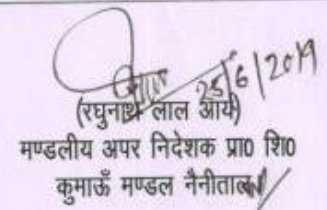 25/6/2019
(रघुनाथ लाल आर्य)
मण्डलीय अपर निदेशक प्रा0 शि0
कुमाऊँ मण्डल नैनीताल